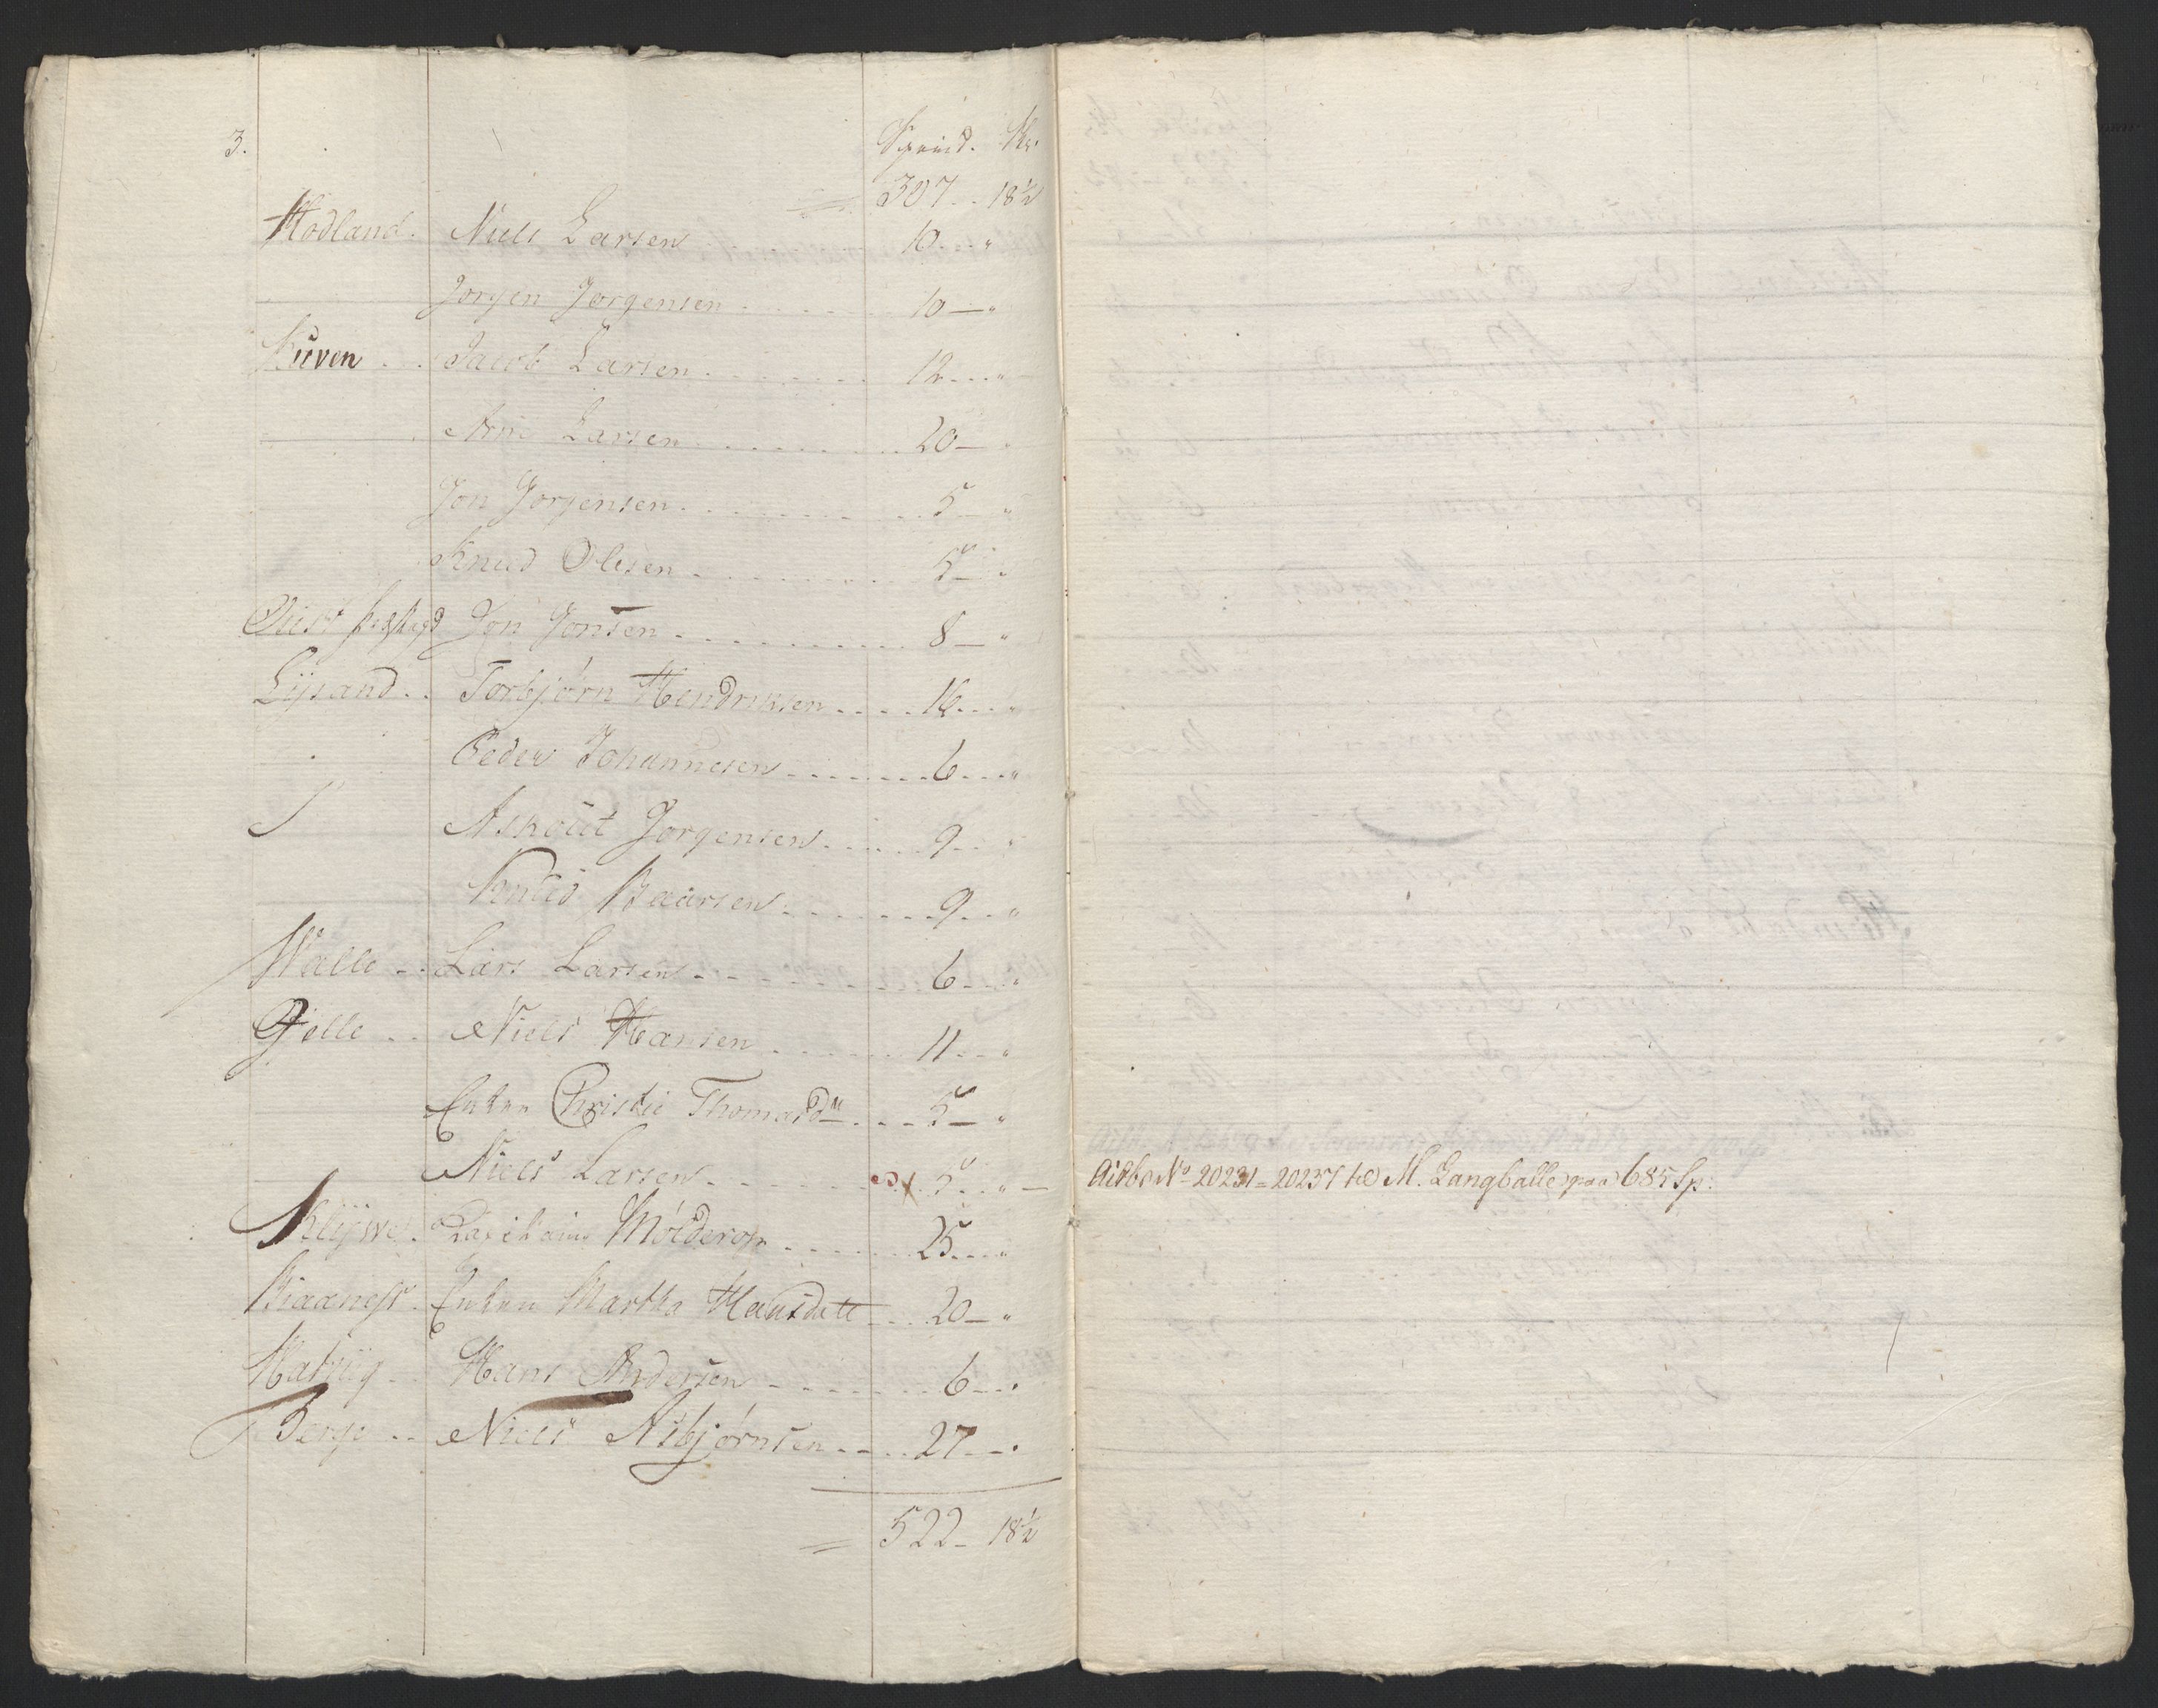 3.
Specied. Sk.
307 .. 18½
Hodland. Niels Larsen 10 .. "
Jorgen Jorgensen .... 10 — "
Kuven .. Jacob Larsen ..... 12 ... "
Arne Larsen ..... 20 —
Jon Jorgensen ..... 5 — "
Knud Olesen ..... 5 — "
Jon Jonsen ..... 8 — "
Lysand .. Torbjørn Hendriksen .... 16 ... "
Peder Johannesen ..... 6 ... "
Askout Jorgensen .... 9 .. "
Knud Baarsen ..... 9 .. "
Walle .. Lars Larsen ..... 6 ... "
Gielle .. Niels Hansen ..... 11 ... "
Enken Christie Thomasd .... 5 — "
Niels Larsen ..... 5 .. " —
Mölderop .... 25 ... "
Enken Martha Hansdatt ... 20 — "
Hatvig .. Hans Andersen ..... 6 — "
Berge .. Niels Asbjørnsen .... 27 — "
= 522 — 18½
No 20231 = 20237 til M. Langballe paa 685 Sp.